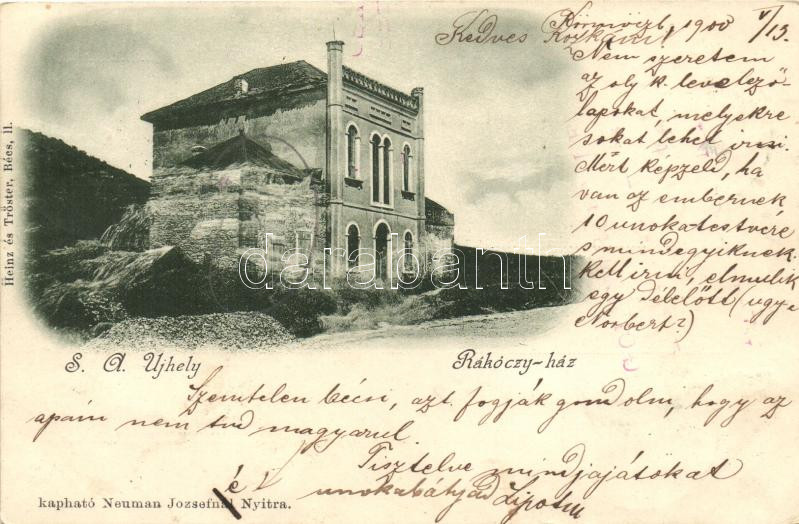 Körmöczb. 1900 V/13.
Kedves Rózsám!
Nem szeretem
az oly k. levelező-
lapokat, melyekre
sokat lehet irni.
Mért képzeld, ha
van az embernek
10 unokatestvére
s mindegyiknek
kell irni, elmulik
egy délelőtt (ugye
Norbert?)
Heinz és Tröster, Bécs, II.
darabanth.com
S. A. Ujhely
Rákóczy-ház
Szemtelen bécsi, azt fogják gondolni, hogy az
apám nem tud magyarul.
Tisztelve mindjajátokat
unokabátyád Lipótm
kapható Neuman Jozsefnál Nyitra.